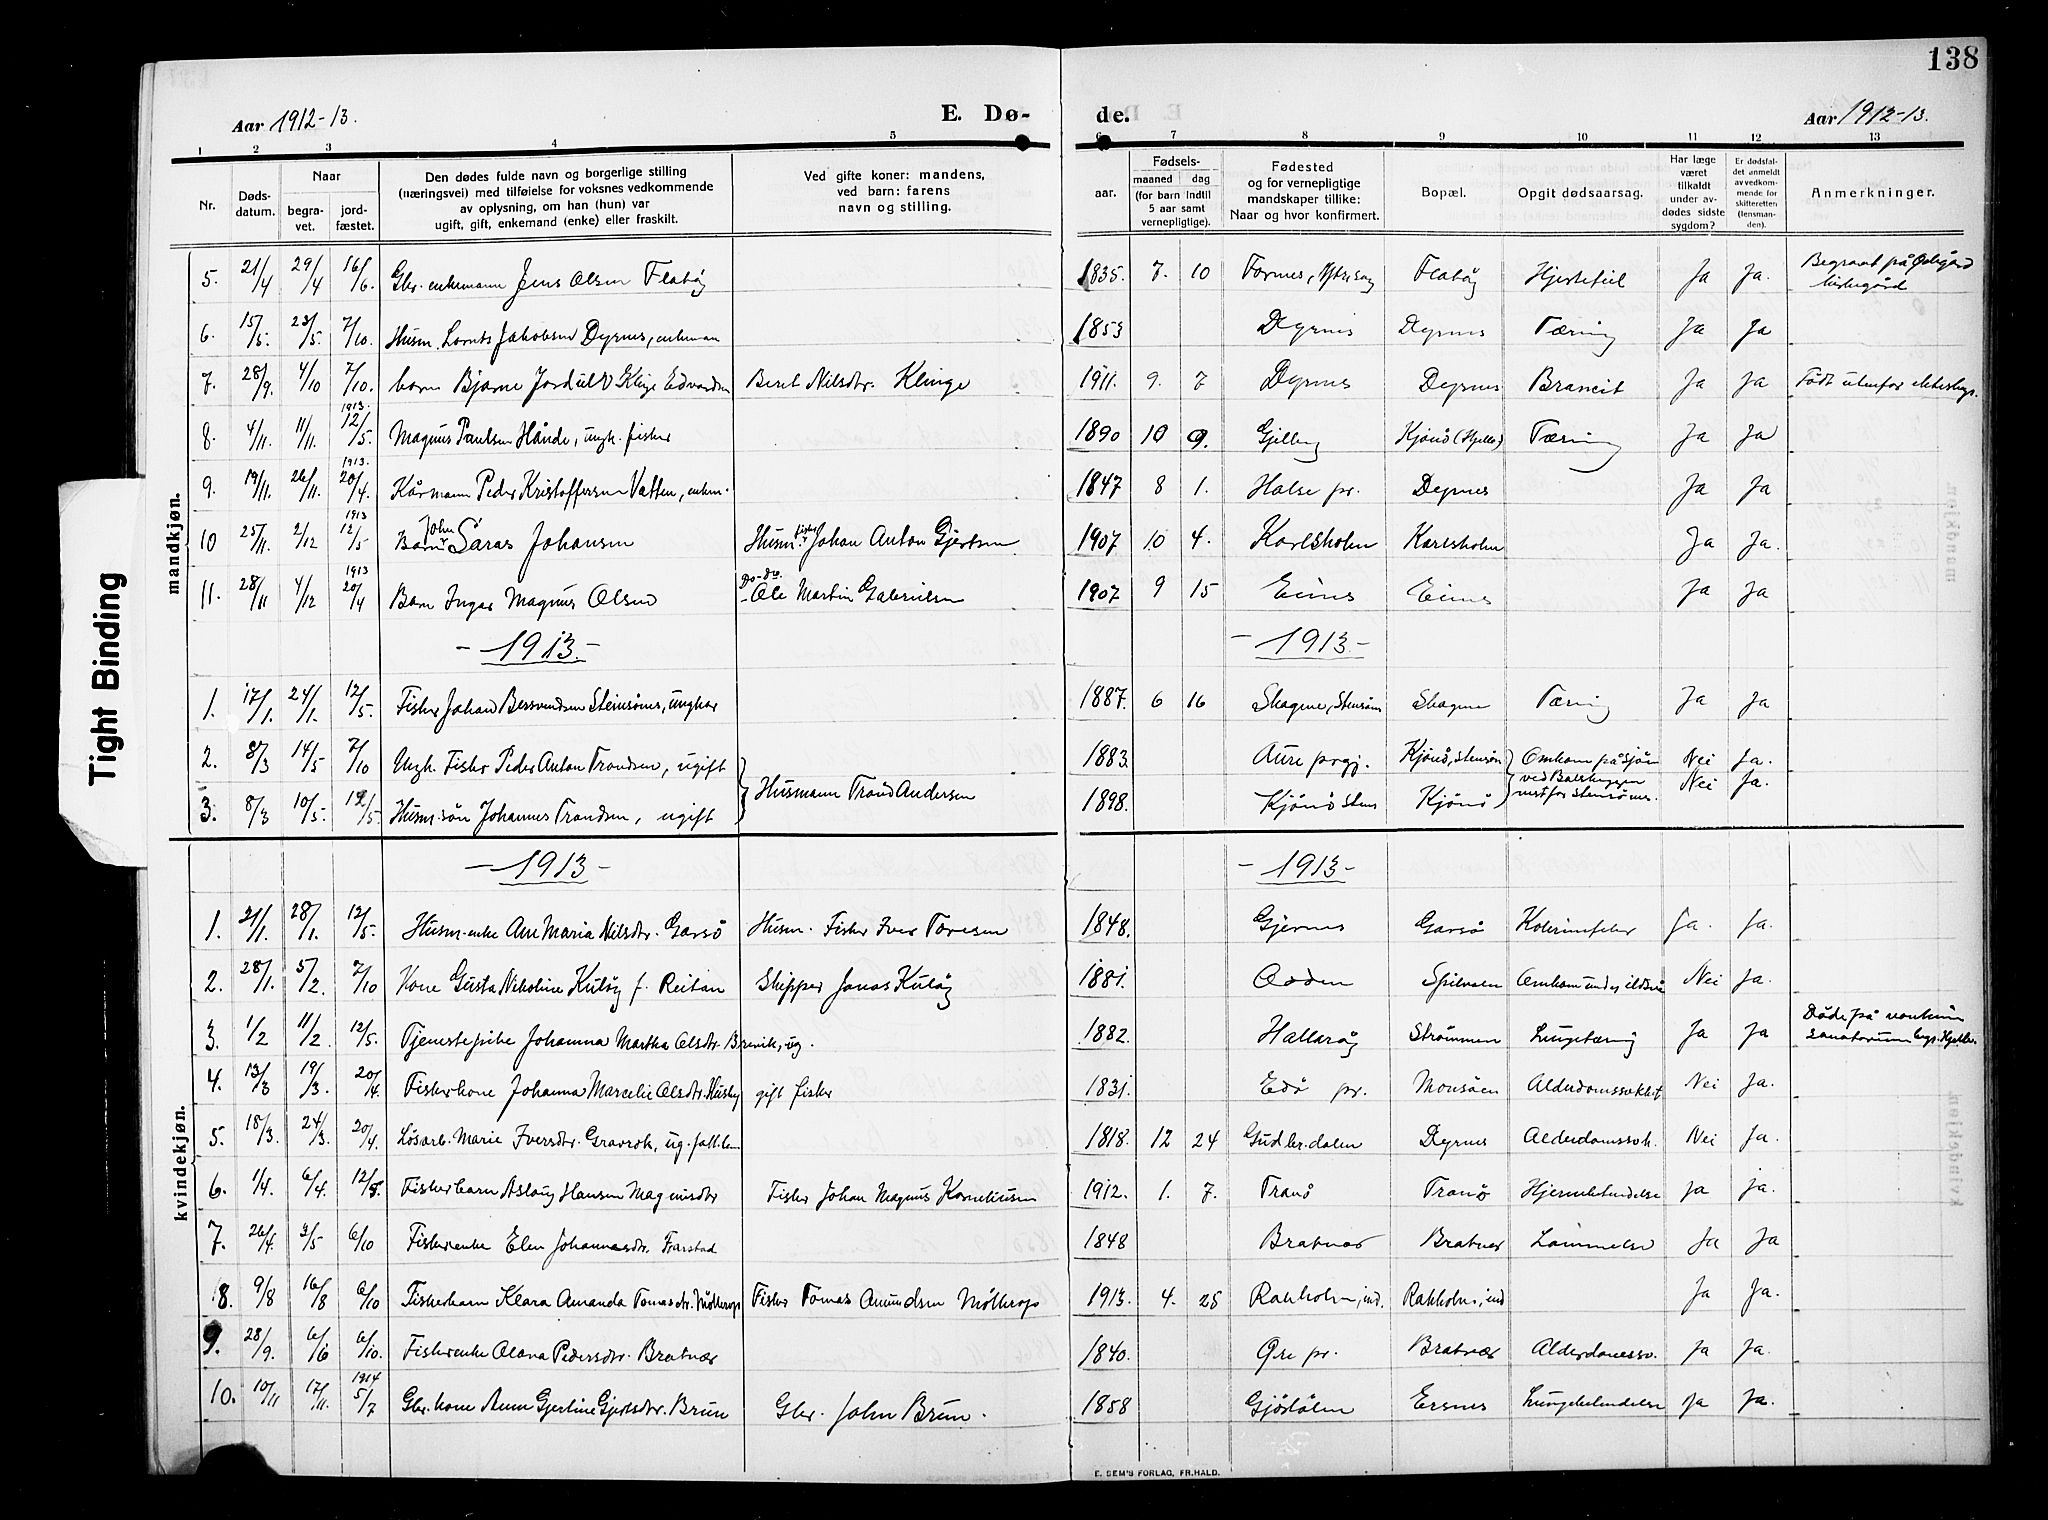 138
Aar 1912-13.
E. Dø-
de.
Aar 1912-13.
1 2 3 4 5 6 7 8 9 10 11 12 13
Nr.
Døds-
datum.
Naar
begra-
vet.
jord-
fæstet.
Den dødes fulde navn og borgerlige stilling
(næringsvei) med tilføielse for voksnes vedkommende
av oplysning, om han (hun) var
ugift, gift, enkemand (enke) eller fraskilt.
Ved gifte koner: mandens,
ved børn: farens
navn og stilling.
Fødsels-
aar.
maaned dag
(for barn indtil
5 aar samt
vernepligtige).
Fødested
og for vernepligtige
mandskaper tillike:
Naar og hvor konfirmert.
Bopæl.
Opgit dødsaarsag.
Har læge
været
tilkaldt
under av-
dødes sidste
sygdom?
Er dødsfal-
det anmeldt
av vedkom-
mende for
skifteretten
(lensman-
den).
Anmerkninger.
mandkjøn.
5. 21/4 29/4 16/6. Gbr. enkemann Jens Olsen Flatøy 1835. 7. 10 Flatøy Hjertefeil Ja Ja. Begravet på Ødegård kirkegård
6. 15/5. 23/5. 7/10. Husm. Lornts Jakobsen Dyrnes, enkeman 1853 Dyrnes Dyrnes Tæring Ja Ja
7. 28/9. 4/10 7/10. barn Bjarne Jordulv Klinge Edvardsen Beret Nilsdtr. Klinge 1911. 9. 7 Dyrnes Dyrnes Ja Ja Født utenfor ekteskap.
8. 4/11. 11/11. 1913. 12/5. Magnus Paulsen Hånde, ungk. fisker 1890 10 9. Tæring Ja Ja
9. 19/11. 26/11. 1913. 20/4. Kårmann Peder Kristoffersen Vatten, enkem. 1847 8 1. Halse pr. Dyrnes Ja Ja
10 25/11. 2/12 1913 12/5 Barn John Saras Johansen Husm. fisker Johan Anton Gjertsen 1907 10 4. Karlsholm Karlsholm Ja Ja.
11. 28/11 4/12 1913 20/4 Barn Ingar Magnus Olsen Do-do. - Ole Martin Gabrielsen 1907 9 15 Ja Ja
- 1913. - - 1913. -
1. 17/1. 24/1. 12/5. Fisker Johan Bersvendsen Stensønes, ungkar 1887. 6 16 Skagene, Skagene Tæring Ja Ja
2. 8/3 14/5 7/10 Ungk. Fisker Peder Anton Trondsen, ugift 1883. Aure prgj. Kjønø, Omkom på sjøen Nei Ja.
Husmann Trond Andersen ved
3. 8/3 10/5. 12/5. Husm. søn Johannes Trondsen, ugift 1898. Kjønø Kjønø vestfor Stensønes. Nei Ja.
kvindekjøn.
- 1913 - - 1913. -
1. 21/1. 28/1. 12/5. Husm. enke Ane Maria Nilsdtr. Garsø Husm. Fisker Iver Toresen 1848. Gjernes Garsø Ja. Ja.
2. 28/1. 5/2. 7/10 Kone Gusta Nikoline Kuløy f. Reitan Skipper Jonas Kuløy 1881. Odden Omkom under Nei Ja.
3. 1/2 11/2. 12/5. Tjenestepike Johanna Martha Olsdtr. Brevik, ug. 1882. Hallarøy Strømmen Lungetæring Ja Ja Døde på sanatorium
4. 13/3 19/3. 20/4. Fiskerkone Johanna Marcelie Olsdtr. Husby gift fisker 1831. Edø pr. Monsøen Nei Ja.
5. 18/3. 24/3. 20/4. Løsarb. Marie Iversdtr. Gravrok, ug. 1818. 12 24 Gudbr.dalen Dyrnes Alderdomssvk. Nei Ja.
6. 1/4. 6/4. 12/5. Fiskerbarn Aslaug Hansen Magnusdtr Fisker Johan Magnus Korneliusen 1912. 1. 7. Tranø Tranø Hjernebetendelse Ja Ja.
7. 26/4. 3/5 6/10 Fiskerenke Elen Johannesdtr. Frarstad 1848 Bratvær Bratvær Lammelse Ja Ja
8. 9/8 16/8 6/10 Fiskerbarn Klara Amanda Tomasdtr. Møllerop Fisker Tomas Amundsen Møllerop 1913. 4. 25 Rakholm, ind. Rakholm, ind Ja Ja.
9. 28/9 6/10. Fiskerenke Olava Pedersdtr. Bratvær 1840. Øre pr. Bratvær Alderdomssv. Ja Ja.
10. 10/11 17/11. 1914 5/7 Gbr. kone Anne Gjertine Gjertsdtr. Brun Gbr. John Brun. 1858 Ersnes Lungebetendelse Ja Ja.
E. SEM'S FORLAG, FR.HALD.
Tight Binding